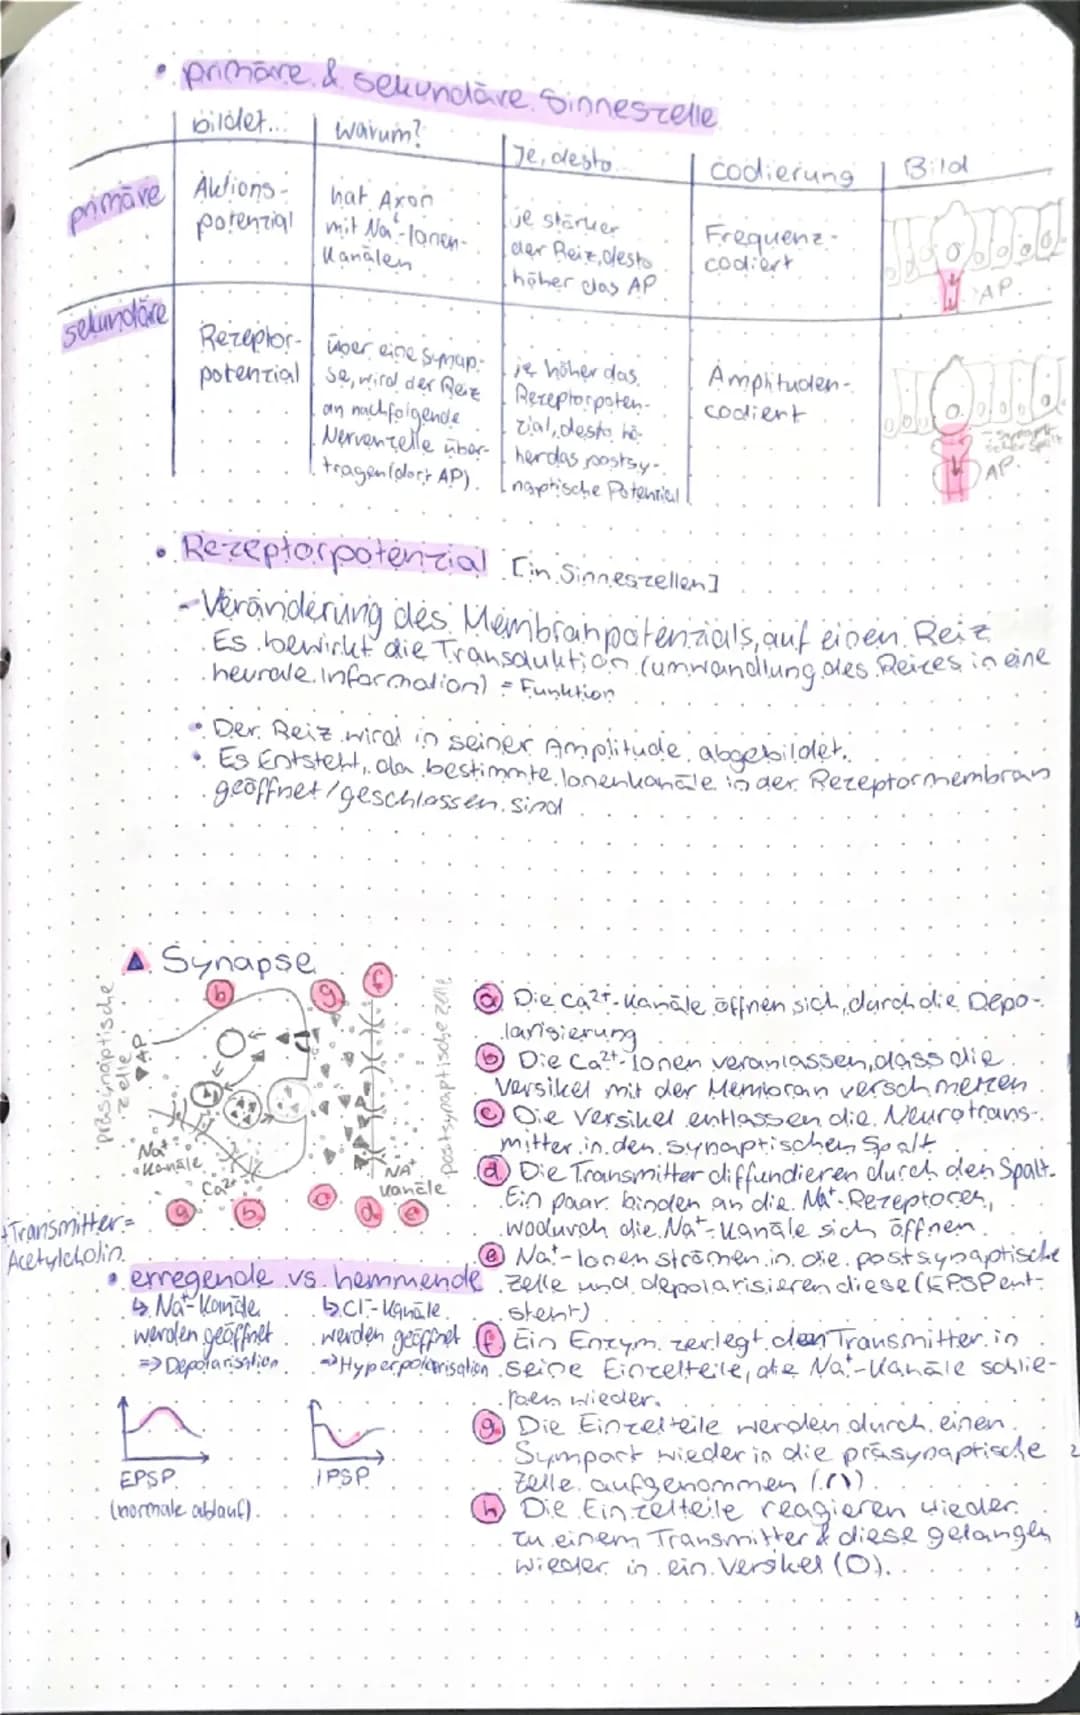 • primäre & sekundäre Sinneszelle
bildet... | warum? | Je, desto... | codierung | Bild
primäre
Aktions-
potenzial
hat Axon
mit Na⁺-Ionen-
Kanälen
je stärker
der Reiz, desto
höher das AP
Frequenz-
codiert
AP
sekundäre
Rezeptor-
potenzial
über eine Synap-
se, wird der Reiz
an nachfolgende
Nervenzelle über-
tragen (dort AP).
je höher das
Rezeptorpoten-
zial, desto hö-
her das postsy-
naptische Potential
Amplituden-
codiert
AP
• Rezeptorpotenzial [in Sinneszellen]
- Veränderung des Membranpotenzials, auf einen Reiz
Es bewirkt die Transduktion (umwandlung des Reizes in eine
neurale Information) = Funktion
• Der Reiz wird in seiner Amplitude abgebildet.
• Es Entsteht, da bestimmte Ionenkanäle in der Rezeptormembran
geöffnet/geschlossen sind
▲ Synapse
b
g
f
präsynaptische
zelle
AP
postsynaptische zelle
Na⁺
Kanäle
Ca²⁺
NA⁺
kanäle
a
b
c
d
e
Transmitter =
Acetylcholin
ⓐ Die Ca²⁺-Kanäle öffnen sich, durch die Depo-
larisierung
ⓑ Die Ca²⁺-Ionen veranlassen, dass die
Versikel mit der Membran verschmelzen
ⓒ Die Versikel entlassen die Neurotrans-
mitter in den synaptischen Spalt
ⓓ Die Transmitter diffundieren durch den Spalt.
Ein paar binden an die Na⁺-Rezeptoren,
wodurch die Na⁺-Kanäle sich öffnen
ⓔ Na⁺-Ionen strömen in die postsynaptische
Zelle und depolarisieren diese (EPSP ent-
steht)
ⓕ Ein Enzym zerlegt den Transmitter in
seine Einzelteile, die Na⁺-Kanäle schlie-
ßen wieder.
ⓖ Die Einzelteile werden durch einen
Symport wieder in die präsynaptische
Zelle aufgenommen (∩)
ⓗ Die Einzelteile reagieren wieder
zu einem Transmitter & diese gelangen
wieder in ein Versikel (O).
• erregende vs. hemmende
↳ Na⁺-Kanäle
werden geöffnet
=> Depolarisation
↳ Cl⁻-Kanäle
werden geöffnet
=> Hyperpolarisation
EPSP
(normale ablauf)
IPSP
2